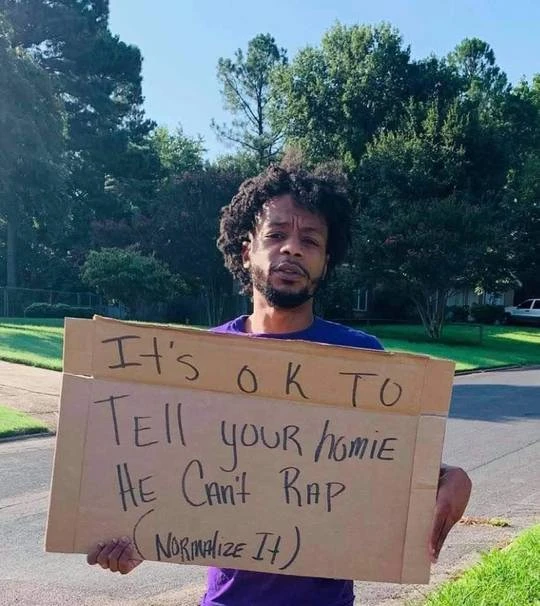 It's OK TO
TEll youR homiE
HE CAn't RAP
(NORMAlizE It)